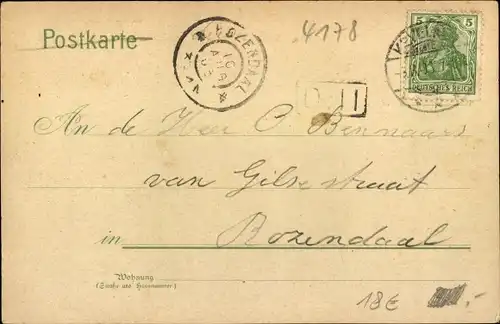 Postkarte
4178
ROZENDAAL
10
5
5
DEUTSCHES REICH
An de Heer C Bennaars
van Gilse straat
in Rozendaal
Wohnung
(Straße und Hausnummer)
18€